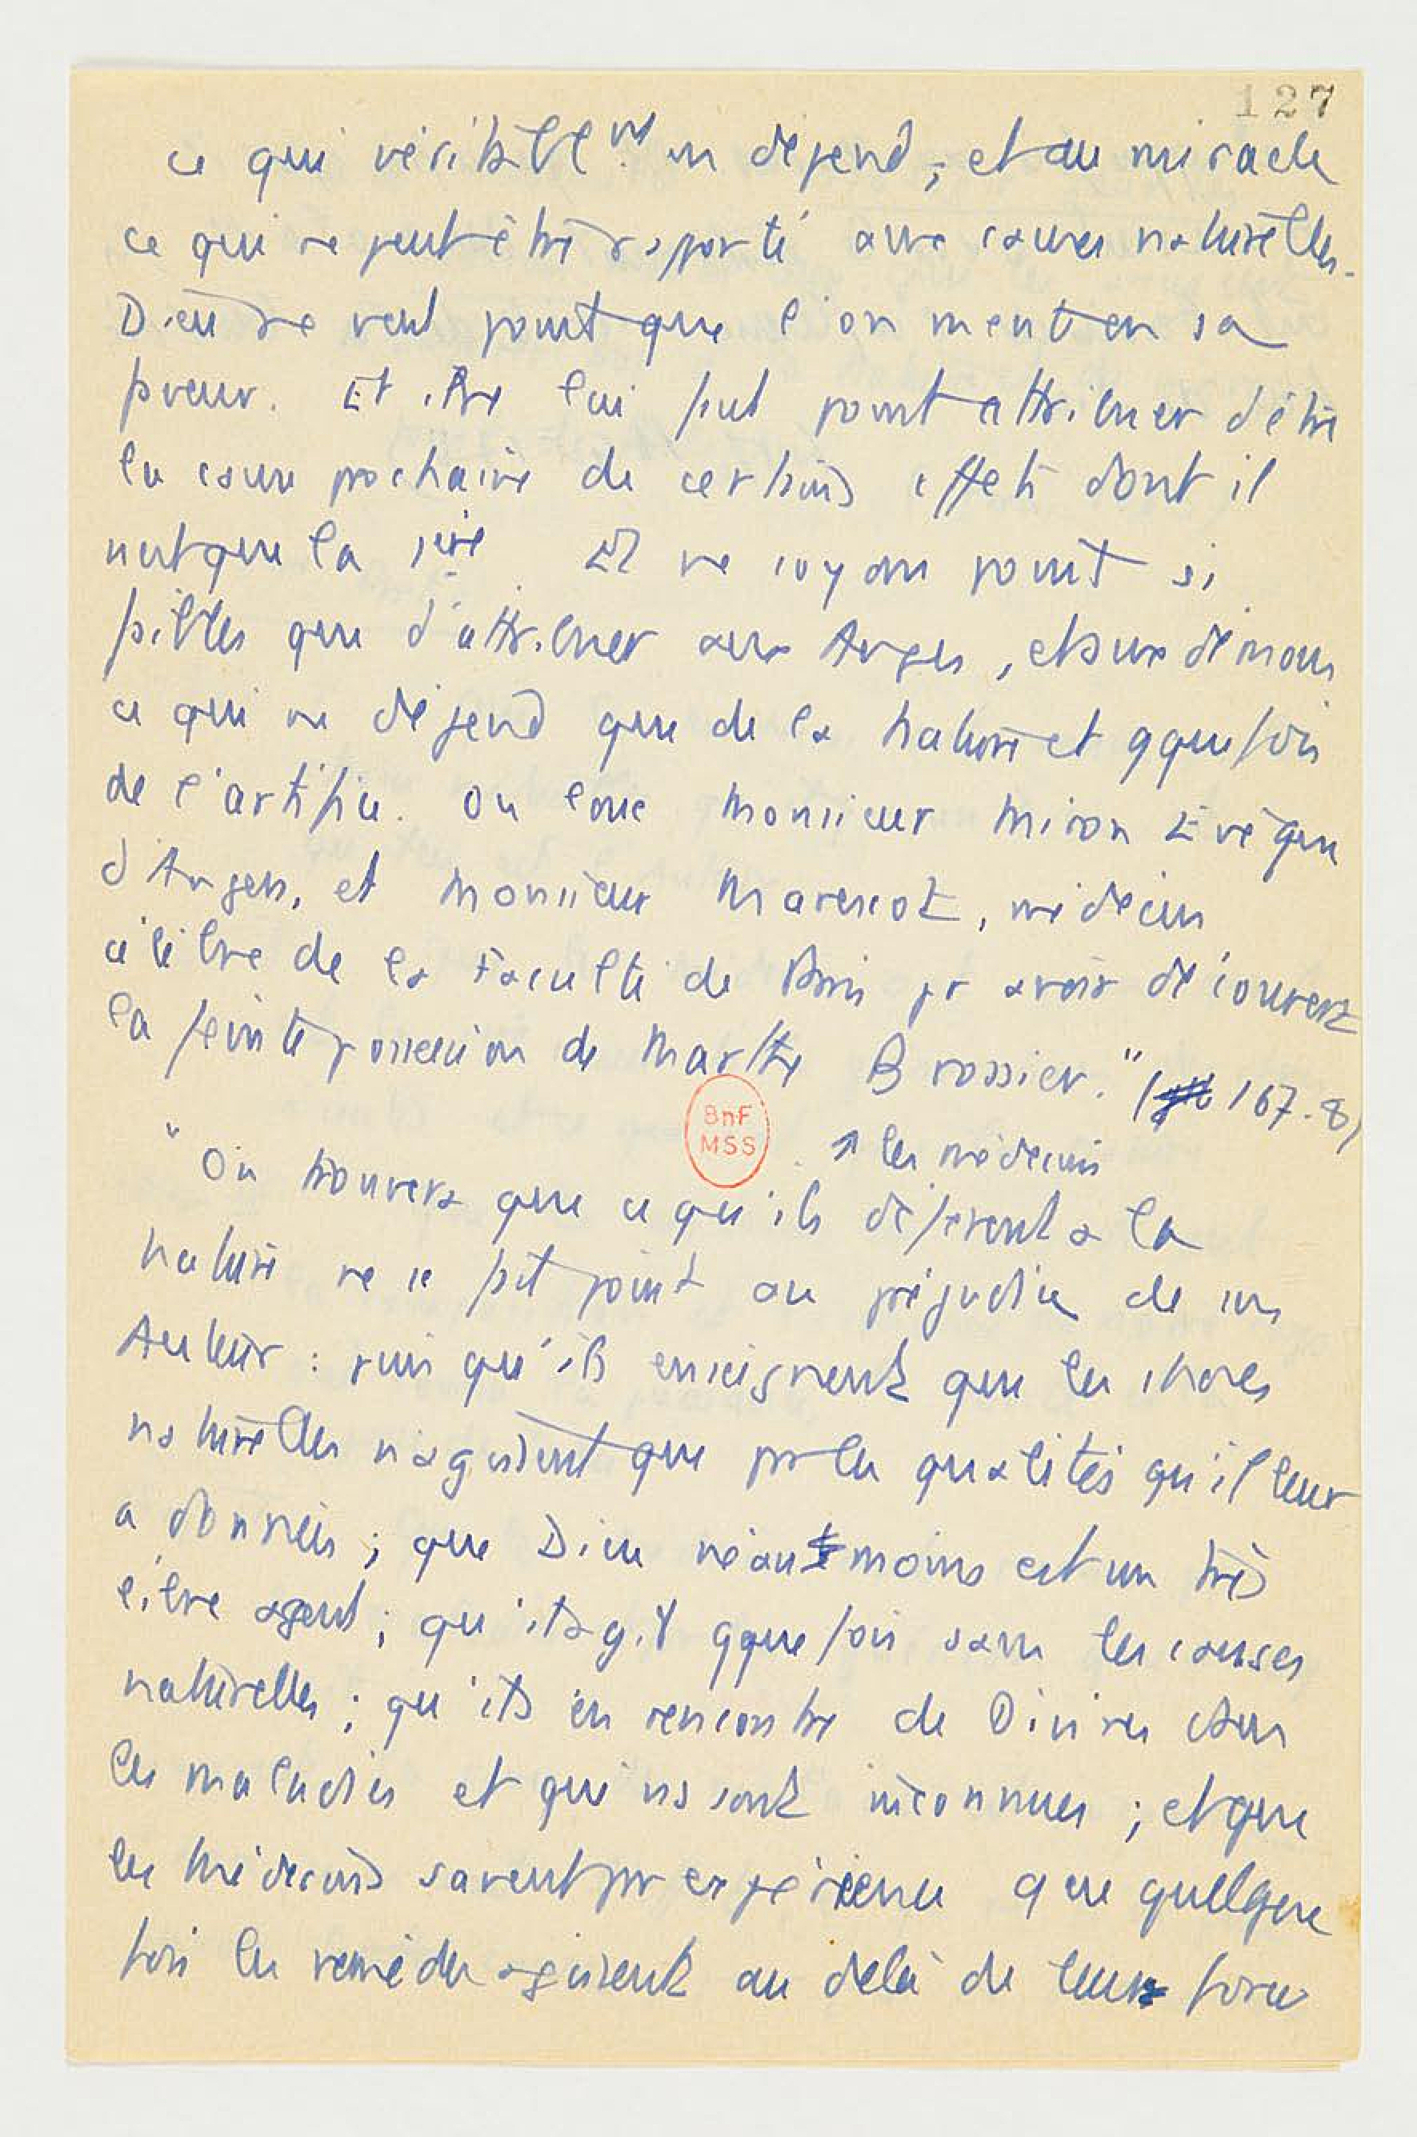 127
ce qui véritablemt en dépend ; et au miracle
ce qui ne peut être rapporté aux causes naturelles.
Dieu ne veut point que l'on mente en sa
faveur. Et il ne lui faut point attribuer d'être
la cause prochaine de certains effets dont il
n'est que la 1ère. Et ne soyons point si
faibles que d'attribuer aux Anges, et aux démons
ce qui ne dépend que de la nature et qquefois
de l'artifice. On loue Monsieur Miron Evêque
d'Angers, et Monsieur Marescot, médecin
célèbre de la Faculté de Paris pr avoir découvert
la feinte possession de Marthe Brossier." (167-8)
BnF
MSS
↗ les médecins
"On trouvera que ce qu'ils défèrent à la
nature ne se fait point au préjudice de son
Auteur : puisqu'ils enseignent que les choses
naturelles n'agissent que par les qualités qu'il leur
a données ; que Dieu néanmoins est un très
libre agent ; qu'il agit qquefois sans les causes
naturelles ; qu'il s'en rencontre de Divines dans
les maladies et qui ns sont inconnues ; et que
les Médecins savent par expérience que quelque
fois les remèdes agissent au delà de leur force